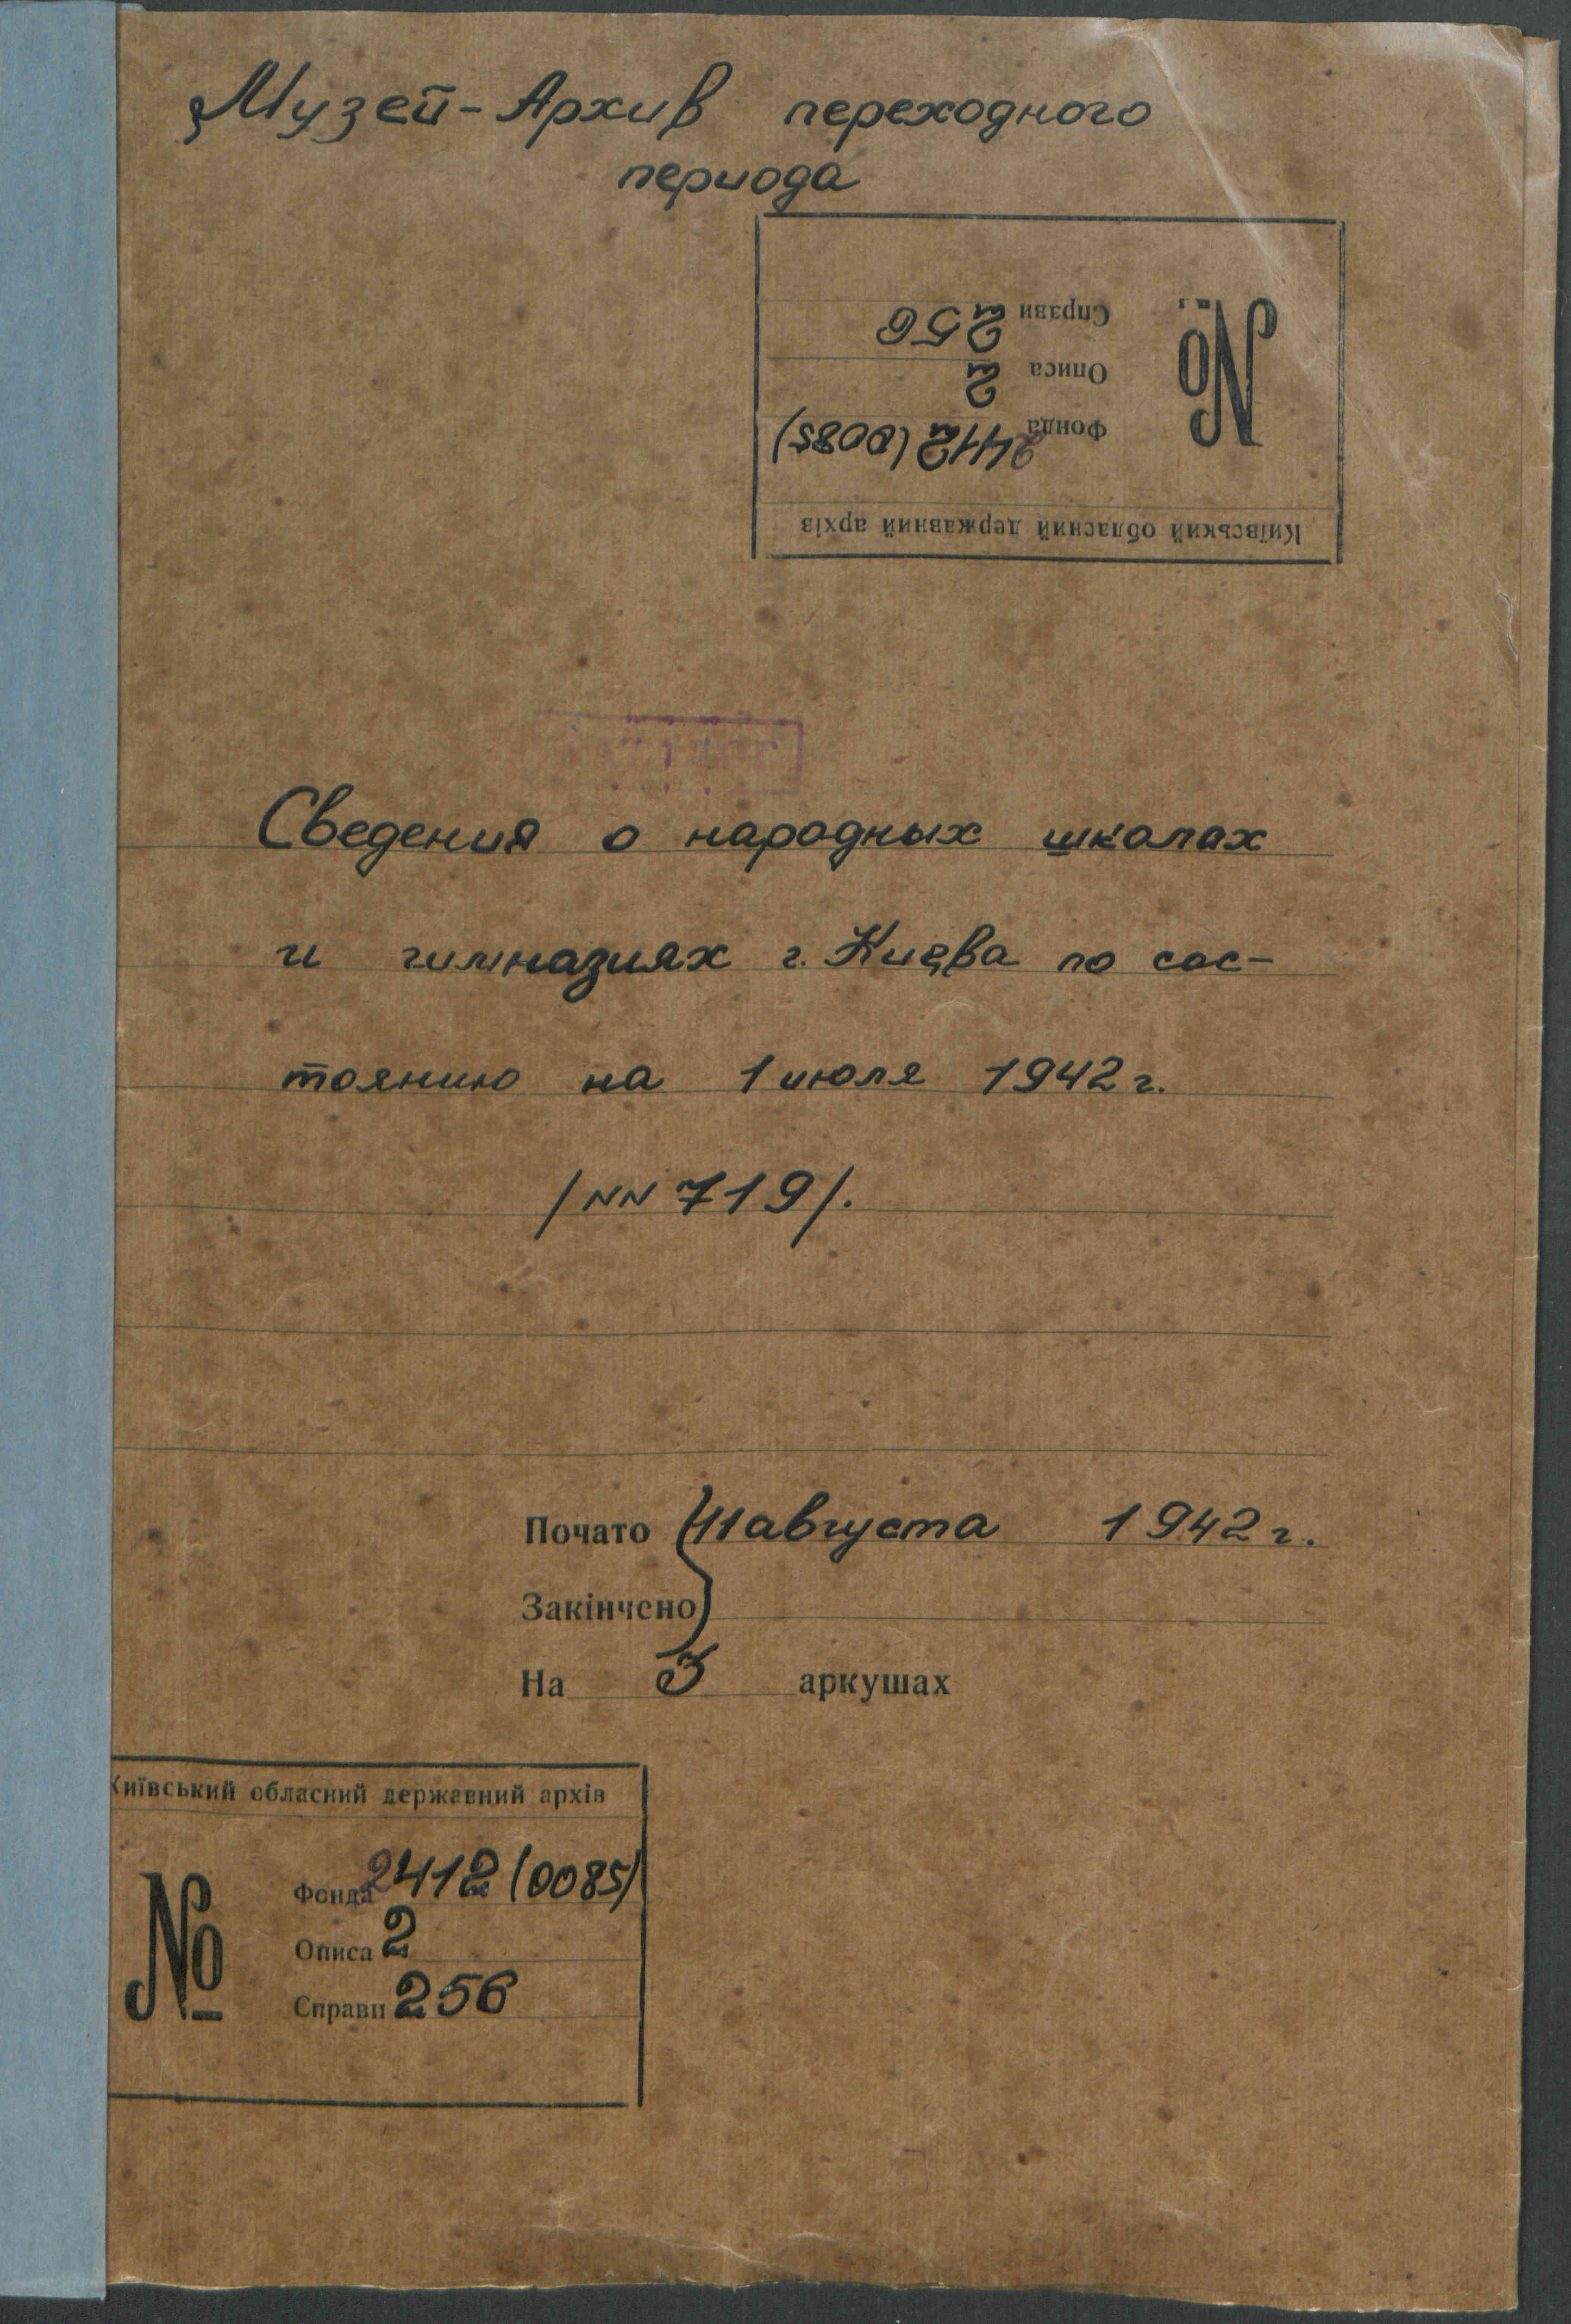 Музей-Архив переходного
периода
Київський обласний державний архів
№
Фонда 2412 (0085)
Описа 2
Справи 256
Сведения о народных школах
и гимназиях г. Киева по сос-
тоянию на 1 июля 1942 г.
/NN 719/.
Почато 11 августа 1942 г.
Закінчено
На 3 аркушах
Київський обласний державний архів
№
Фонда 2412 (0085)
Описа 2
Справи 256